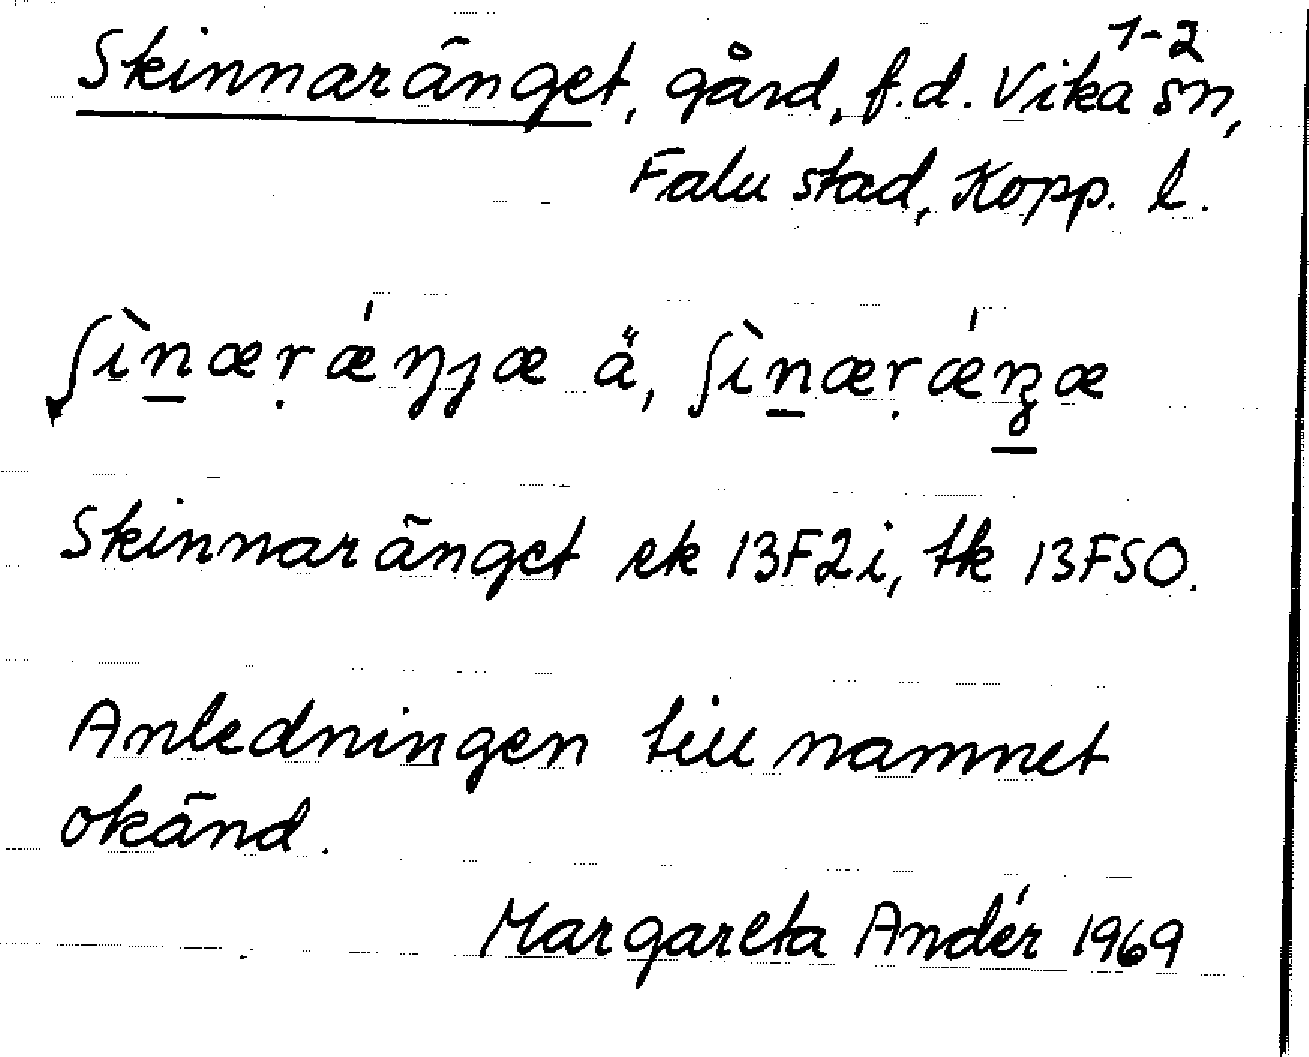 1-2
Skinnaränget, gård, f.d. Vika sn,
Falu stad, Kopp. l.
ʃìnærǽŋȷæ ä, ʃìnærǽnʒæ
Skinnaränget ek 13F2i, tk 13FSO.
Anledningen till namnet
okänd.
Margareta Andér 1969